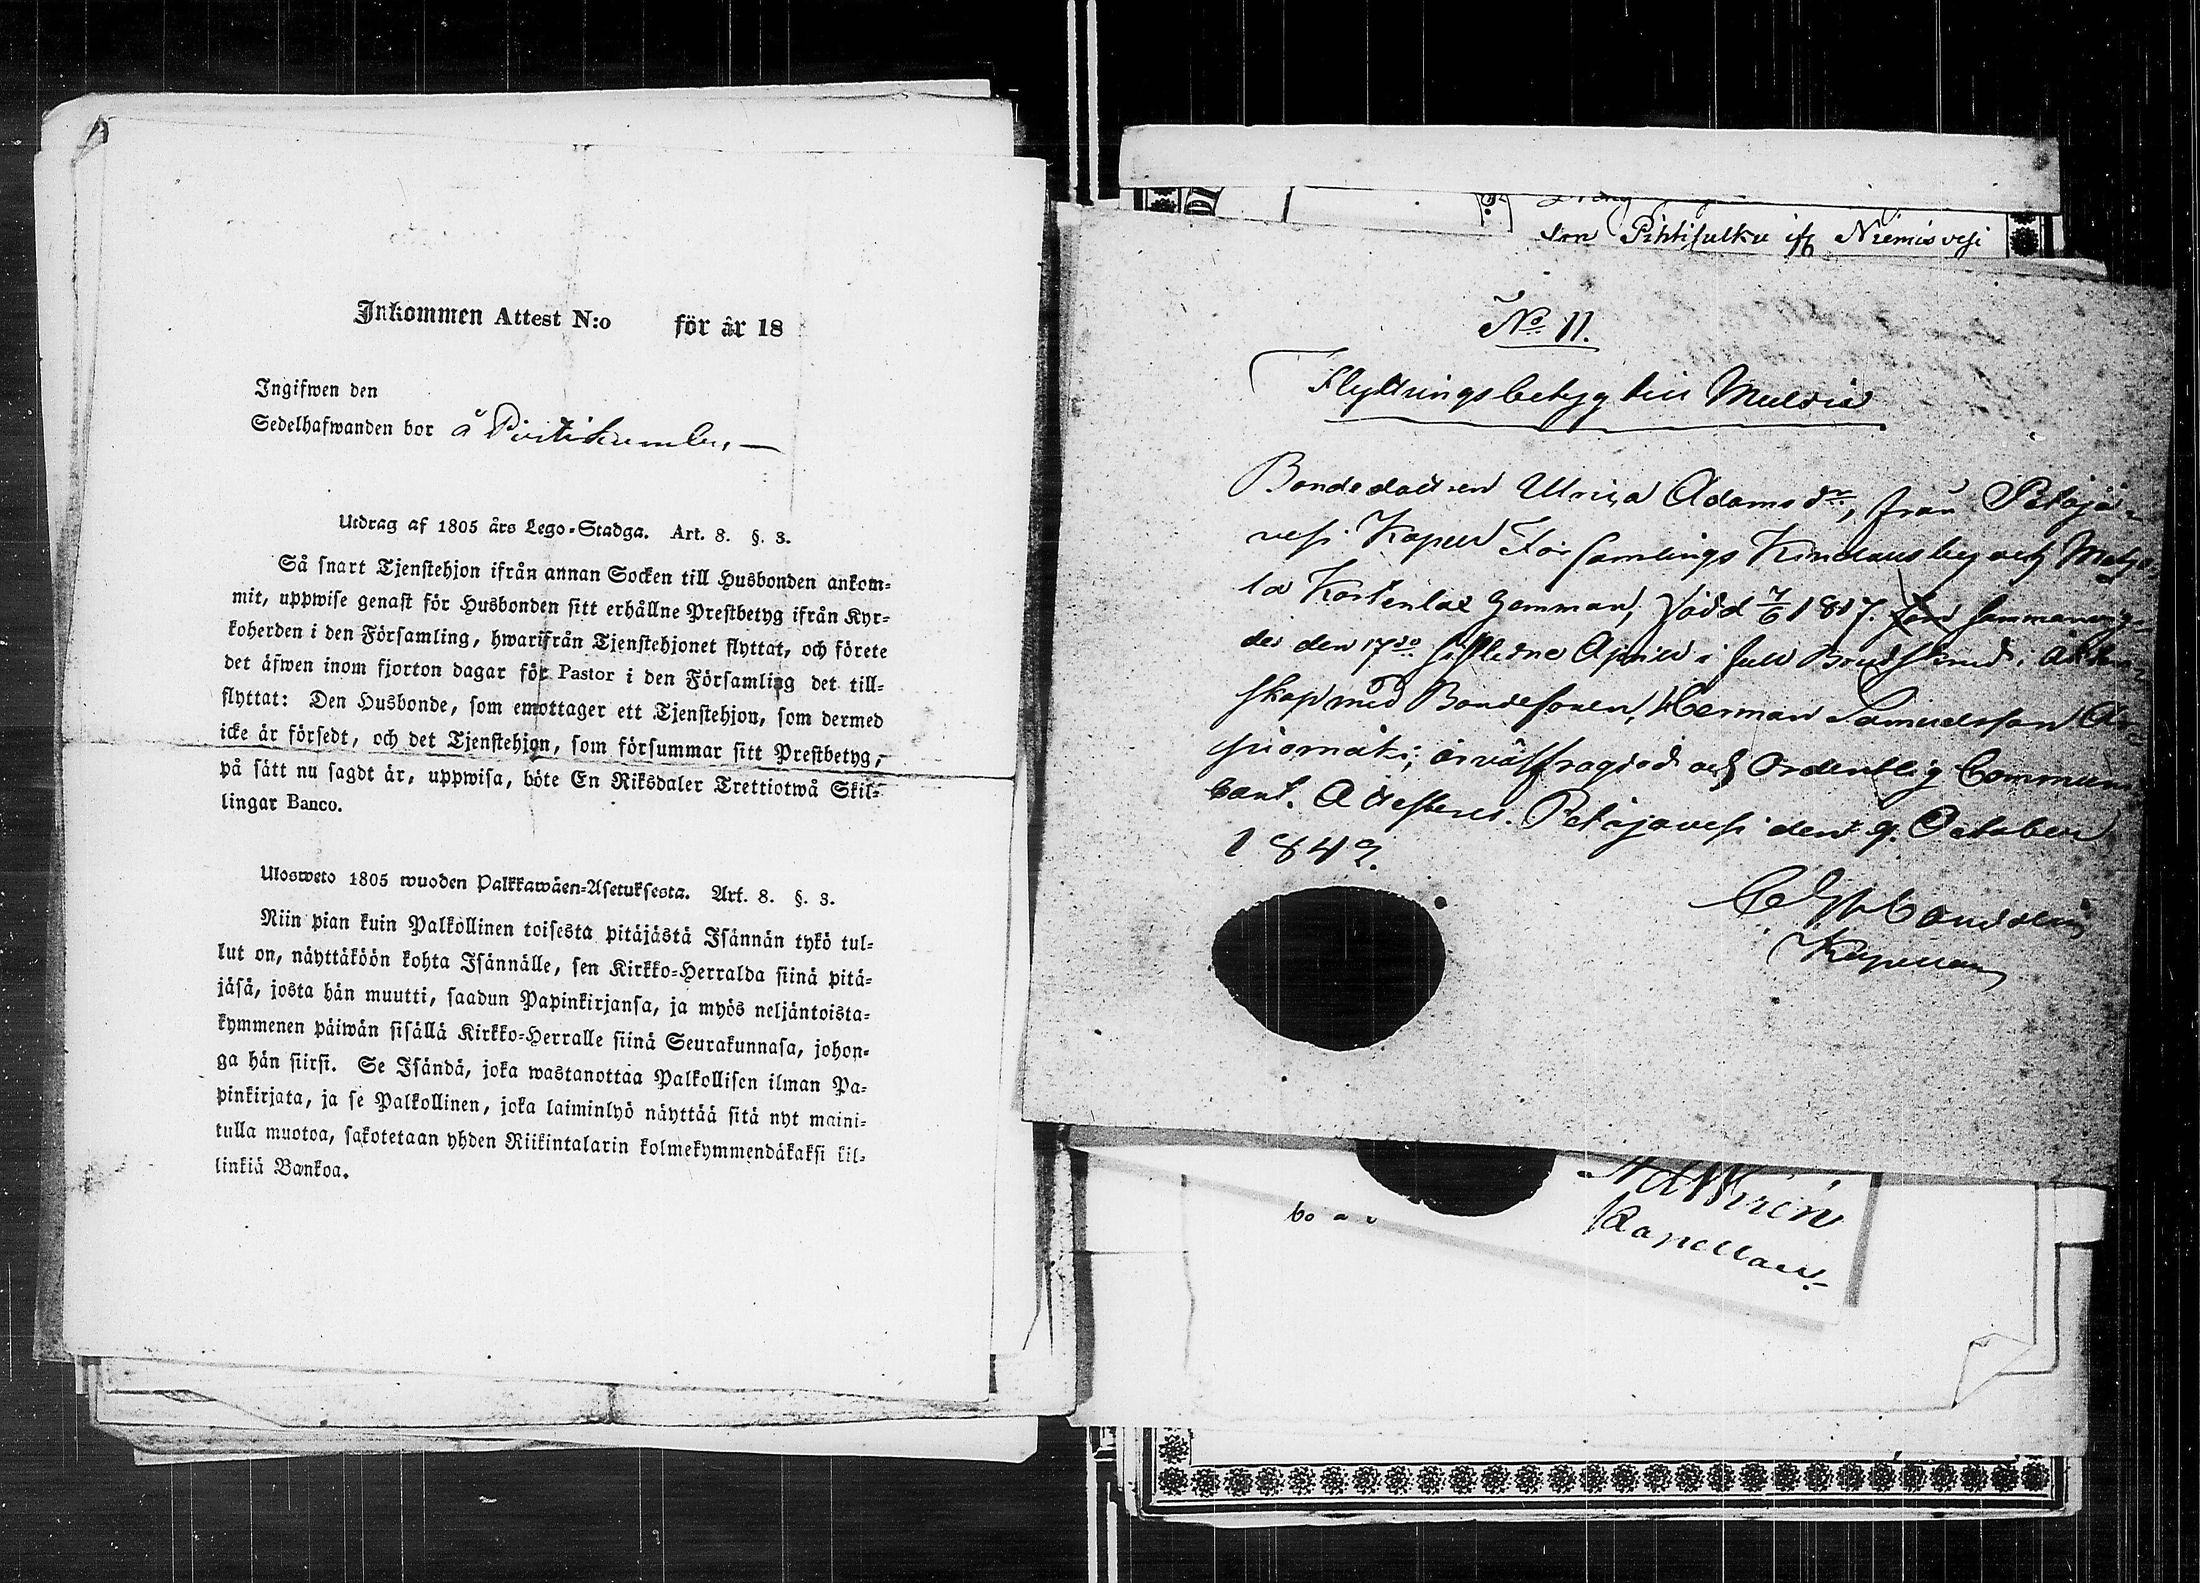 Inkommen Attest N:o för år 18
Ingifwen den
Sedelhafwanden bor å
Utdrag af 1805 års Lego-Stadga. Art. 8. §. 3.
Så snart Tjenstehjon ifrån annan Socken till Husbonden ankom-
mit, uppwise genast för Husbonden sitt erhållne Prestbetyg ifrån Kyr-
koherden i den Församling, hwarifrån Tjenstehjonet flyttat, och förete
det äfwen inom fjorton dagar för Pastor i den Församling det till-
flyttat: Den Husbonde, som emottager ett Tjenstehjon, som dermed
icke är försedt, och det Tjenstehjon, som försummar sitt Prestbetyg,
på sätt nu sagdt är, uppwisa, böte En Riksdaler Trettiotwå Skil-
lingar Banco.
Ulosweto 1805 wuoden Palkkawäen-Asetuksesta. Art. 8. §. 3.
Niin pian kuin Palkollinen toisesta pitäjästä Isännän tykö tul-
lut on, näyttäköön kohta Isännälle, sen Kirkko-Herralda siinä pitä-
jäsä, josta hän muutti, saadun Papinkirjansa, ja myös neljäntoista-
kymmenen päiwän sisällä Kirkko-Herralle siinä Seurakunnasa, johon-
ga hän siirsi. Se Isändä, joka wastanottaa Palkollisen ilman Pa-
pinkirjata, ja se Palkollinen, joka laiminlyö näyttää sitä nyt maini-
tulla muotoa, sakotetaan yhden Riikintalarin kolmekymmendäkaksi kil-
linkiä Bankoa.
son Pihtisulku ifr Niemisvesi
No 11.
Flyttningsbetyg till Multia
Bondedottren Ulrica Adamsdr, från Petäjä-
vesi Kapell Församlings Kindausby och
la hemman, född 7/6 1817. sammanvig-
des den 17de sistledne April i full
skap med Bondesonen, Herman Samuelsson
är välfrägdad och Ordentlig Communi
cant. Attesteras. Petäjävesi den 9. October
1842.
Kapellan
Kapellan.